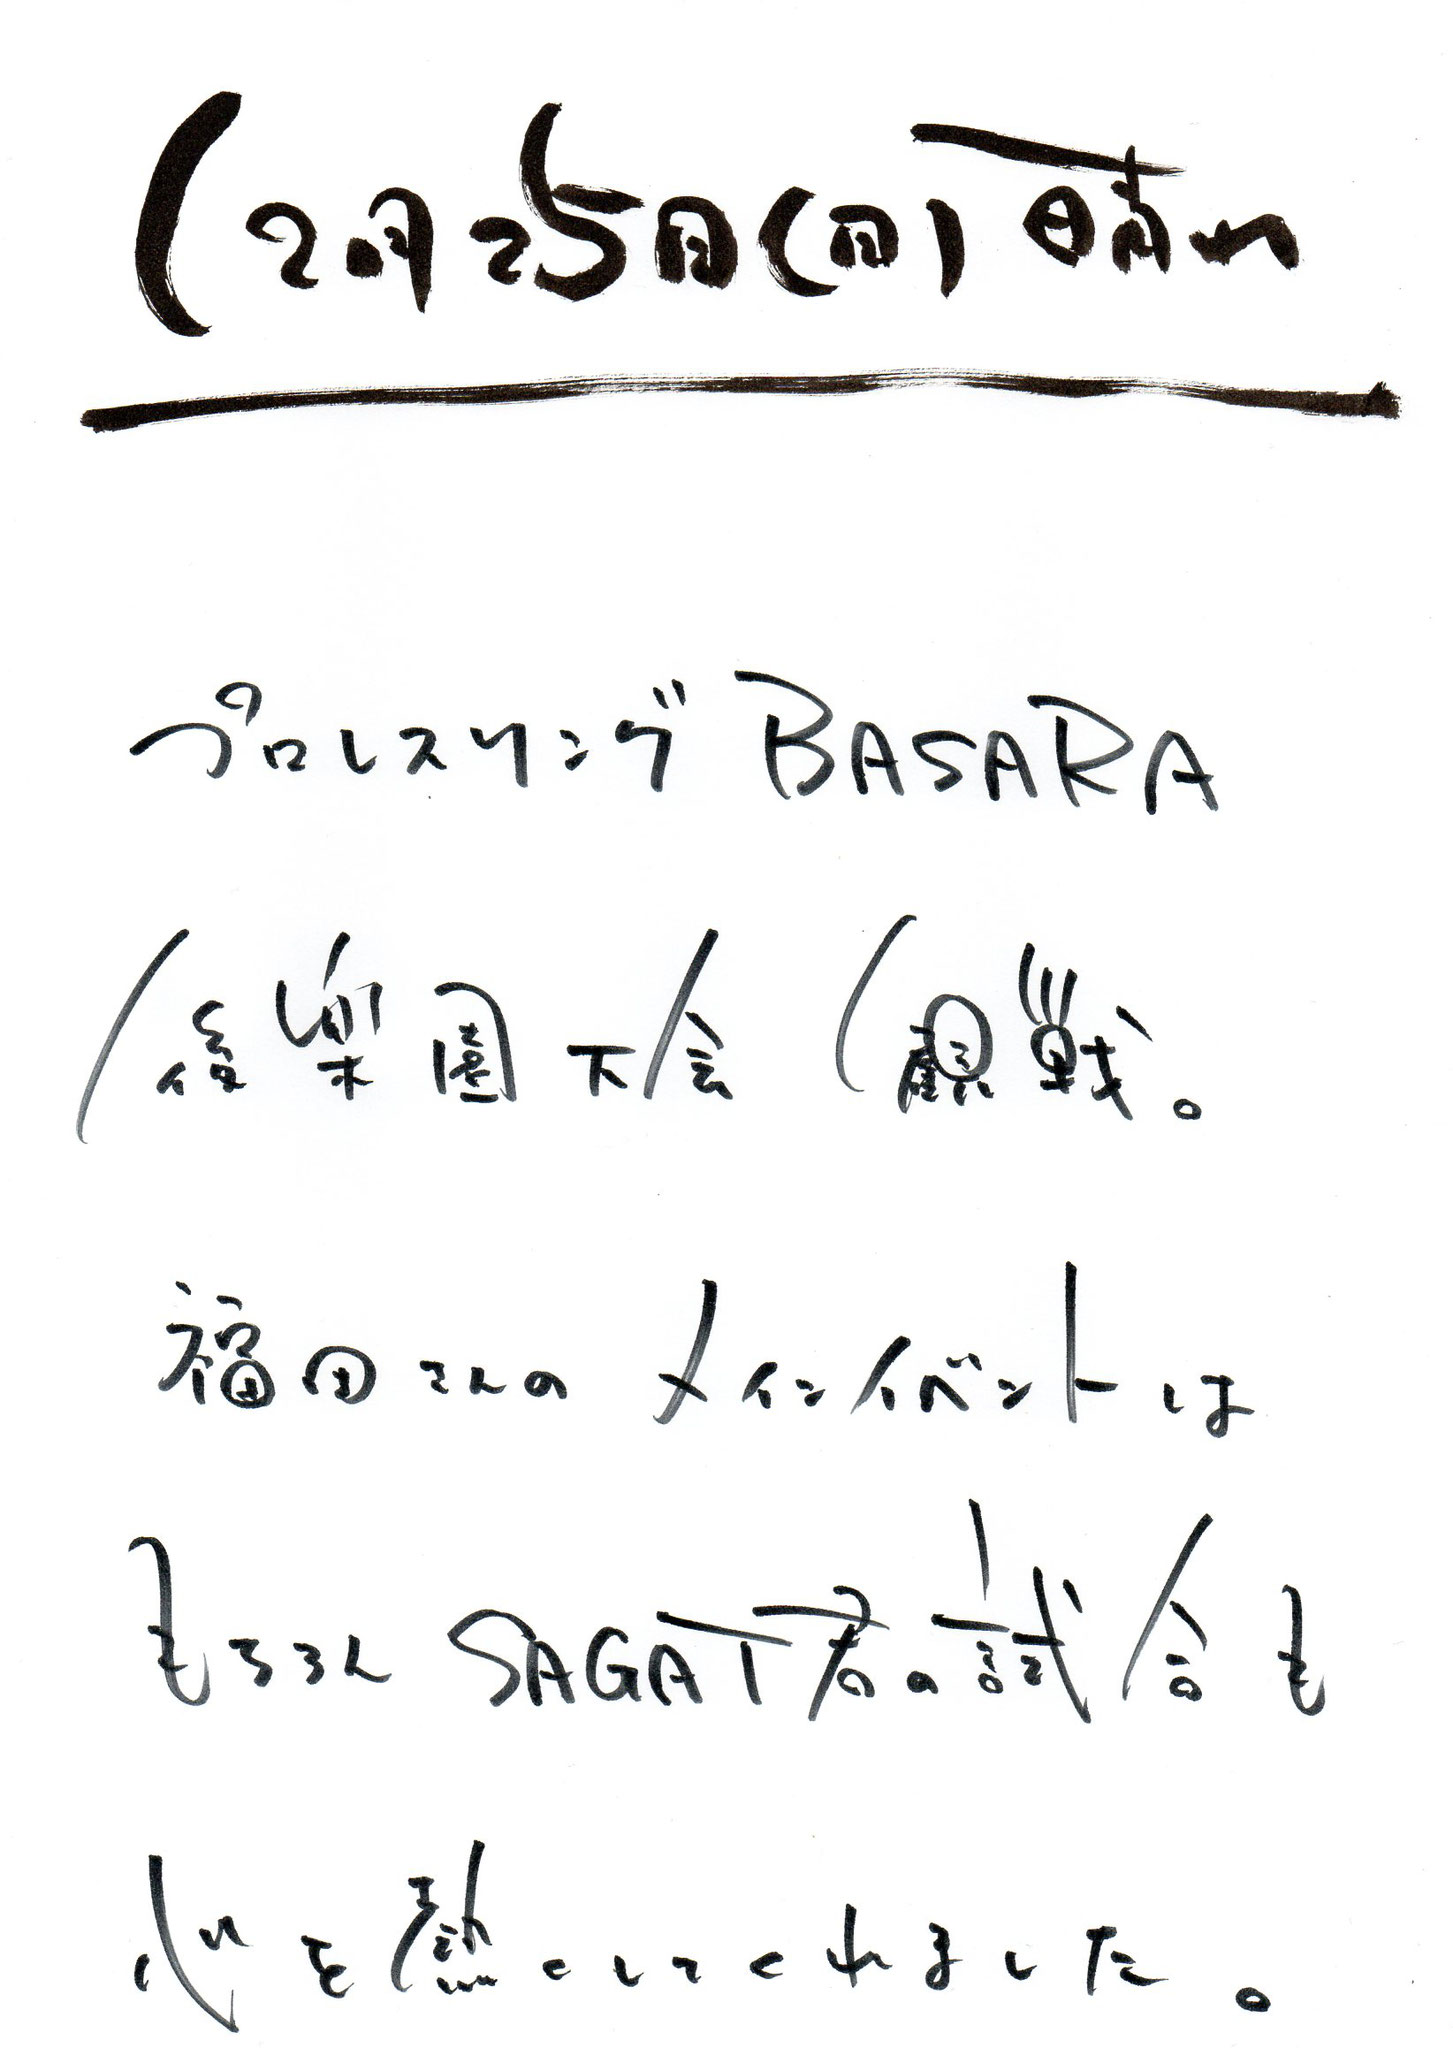 12月25日(日)晴れ
プロレスリングBASARA
後楽園大会観戦。
福田さんのメインイベントは
もちろんSAGAT君の試合も
心を熱くしてくれました。